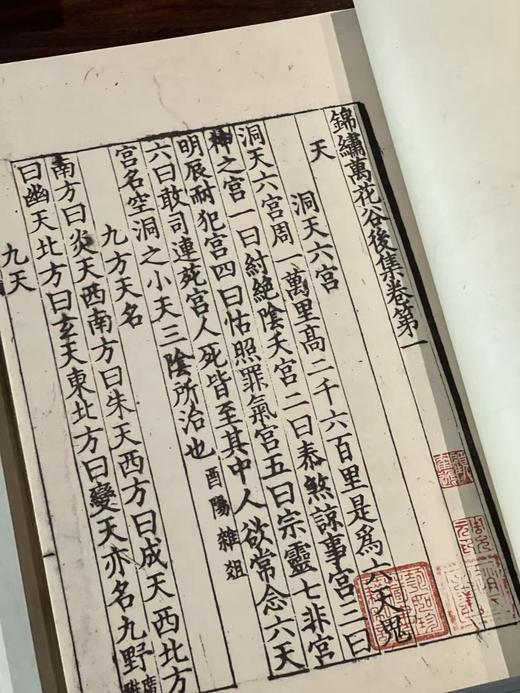 錦繡萬花谷後集卷第一
天
洞天六宮
洞天六宮周一萬里高二千六百里是為六天鬼
神之宮一曰紂絕陰天宮二曰泰煞諒事宮三曰
明辰耐犯宮四曰怙照罪氣宮五曰宗靈七非宮
六曰敢司連苑宮人死皆至其中人欲常念六天
宮名空洞之小天三陰所治也 酉陽雜俎
九方天名
南方曰炎天西南方曰朱天西方曰成天西北方
曰幽天北方曰玄天東北方曰變天亦名九野 廣雅
九天